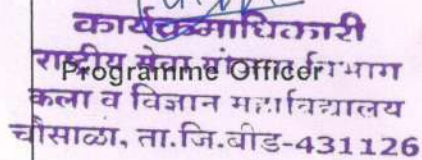 कार्यक्रमाधिकारी
राष्ट्रीय सेवा विभाग
Programme Officer
कला व विज्ञान महाविद्यालय
चौसाळा, ता.जि.बीड-431126